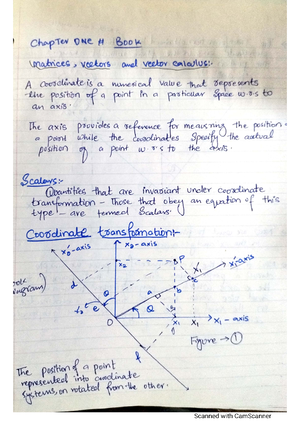 Chapter ONE # BOOK
Matrices, vectors and vector calculus:-
A coordinate is a numerical value that represents
the position of a point in a particular space w.r.s to
an axis.
The axis provides a reference for measuring the position
a point while the coordinates specify the actual
position of a point w.r.s to the axis.
Scalars:-
Quantities that are invariant under coordinate
transformation - Those that obey an equation of this
type - are termed Scalars.
Coordinate transformation:-
x₂-axis
x₂
P
x₁'-axis
d
a
b
c
e
θ
O
θ
x₁
x₁
x₁-axis
f
diagram)
Figure → ①
The position of a point
represented into coordinate
systems, on rotated from the other.
Scanned with CamScanner